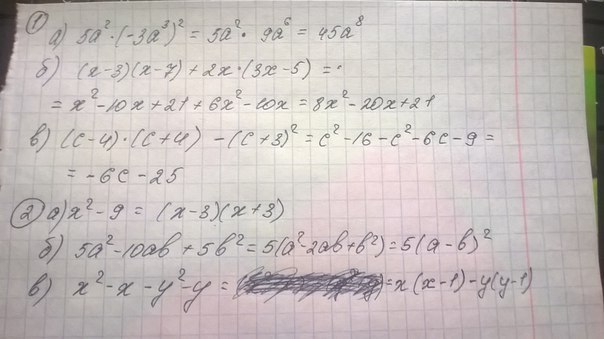 ① а) 5a²·(-3a³)² = 5a²· 9a⁶ = 45a⁸
б) (x-3)(x-7) + 2x·(3x-5) =
= x²-10x+21+6x²-10x = 8x²-20x+21
в) (c-4)·(c+4) - (c+3)² = c²-16-c²-6c-9 =
= -6c-25
② а) x²-9 = (x-3)(x+3)
б) 5a²-10ab+5b² = 5(a²-2ab+b²) = 5(a-b)²
в) x²-x-y²-y = = x(x-1)-y(y-1)